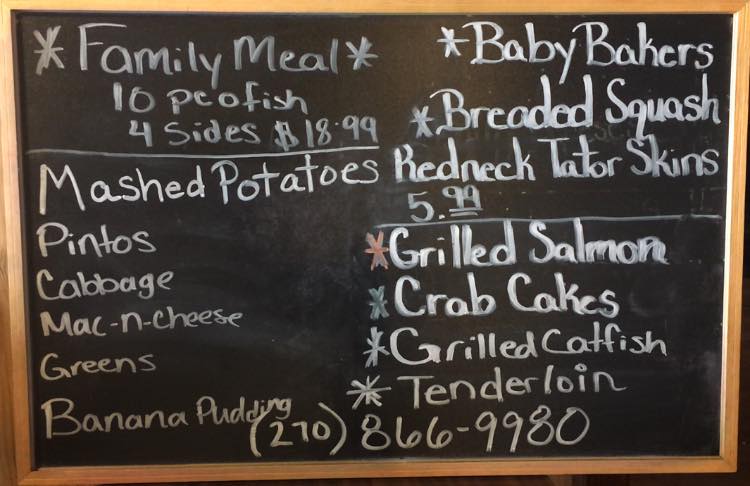 * Family Meal *
10 pc of ish
4 Sides $18.99
Mashed Potatoes
Pintos
Cabbage
Mac-n-cheese
Greens
Banana Pudding
* Baby Bakers
* Breaded Squash
Redneck Tator Skins
5.99
* Grilled Salmon
* Crab Cakes
* Grilled Catfish
* Tenderloin
(270) 866-9980